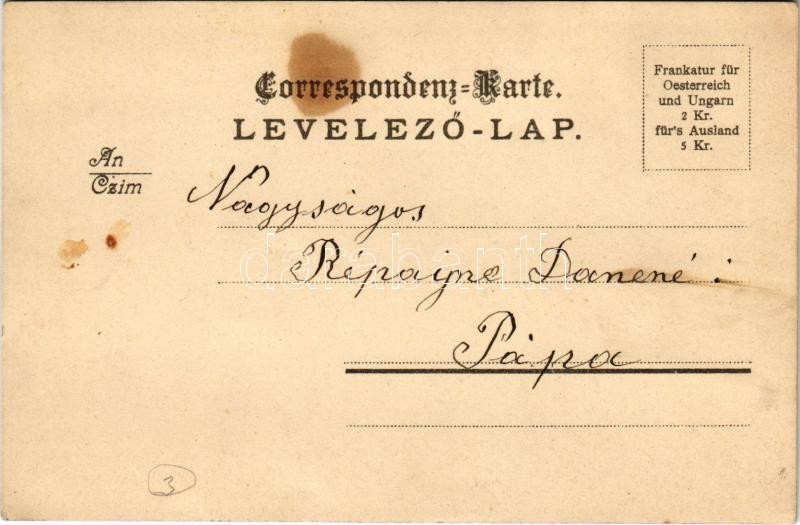 Correspondenz-Karte.
LEVELEZŐ-LAP.
Frankatur für
Oesterreich
und Ungarn
2 Kr.
für's Ausland
5 Kr.
An
Czim
Nagyságos
Répainé Danené
Pápa
darabanth
3